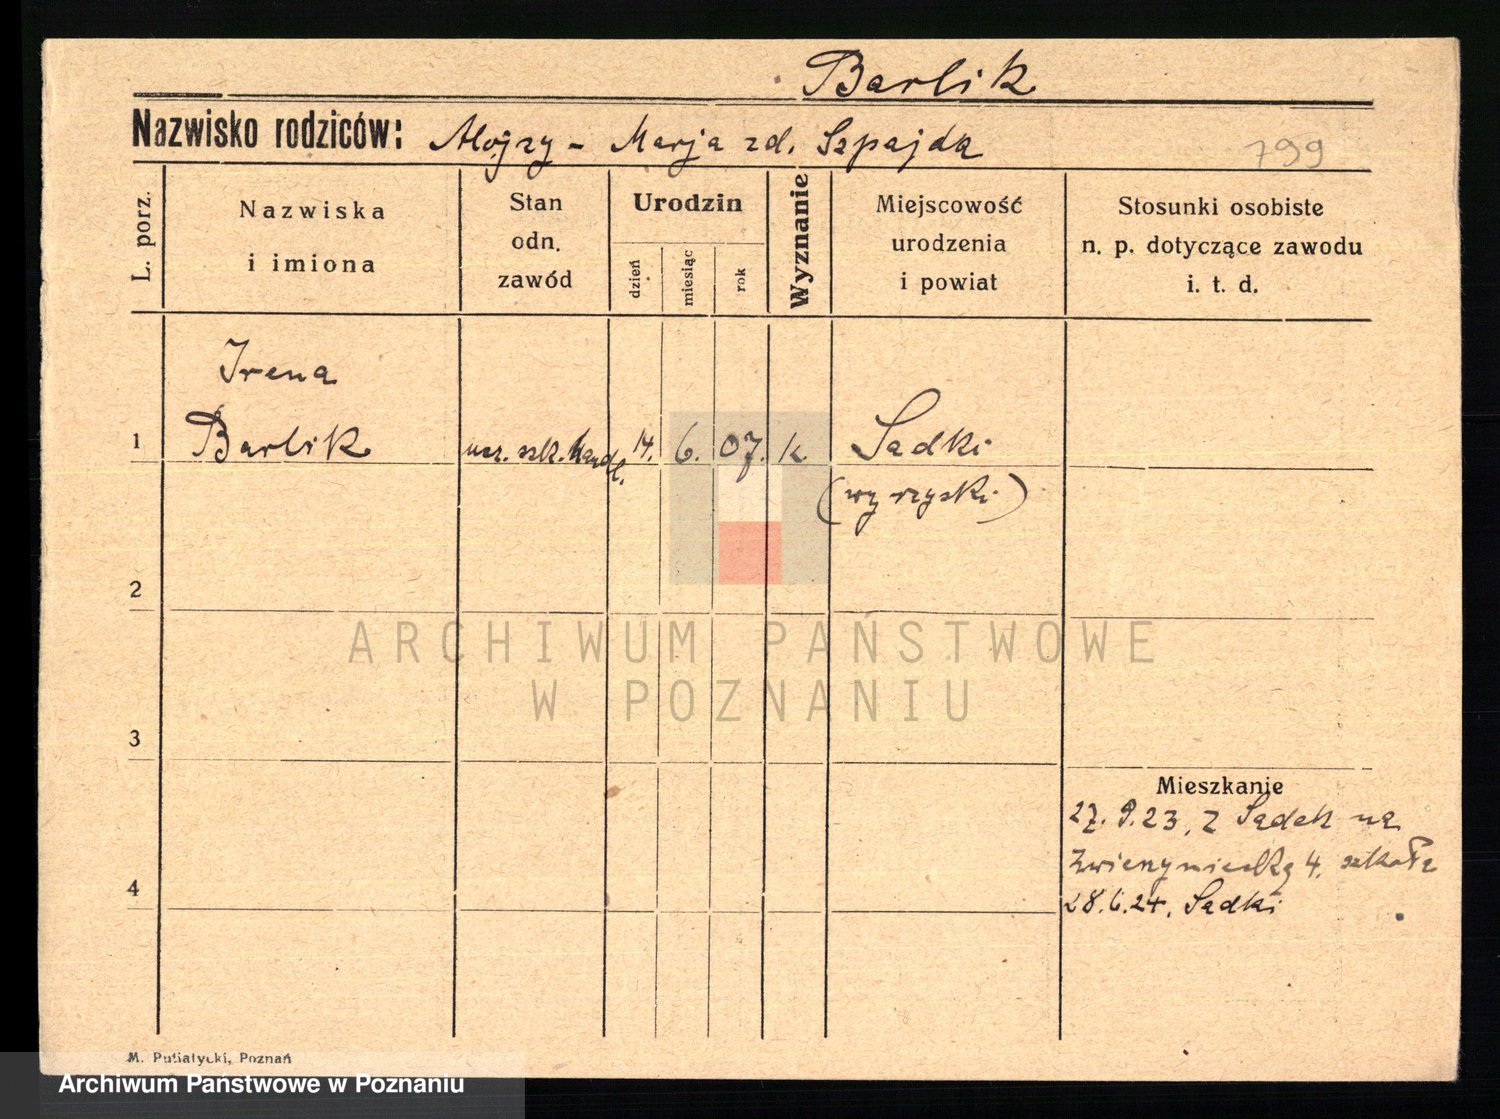 Barlik
Nazwisko rodziców: Alojzy - Marja zd. Szpajda
799
L. porz.
Nazwiska
i imiona
Stan
odn.
zawód
Urodzin
dzień
miesiąc
rok
Wyznanie
Miejscowość
urodzenia
i powiat
Stosunki osobiste
n. p. dotyczące zawodu
i. t. d.
Irena
1 Barlik ucz. szk. handl. 14. 6. 07. k. Sadki
(wyrzyski)
2
ARCHIWUM PAŃSTWOWE
W POZNANIU
3
Mieszkanie
27. 9. 23, z Sadek na
Zwierzyniecką 4. szkoła
4
28. 6. 24. Sadki
M. Putiatycki, Poznań
Archiwum Państwowe w Poznaniu